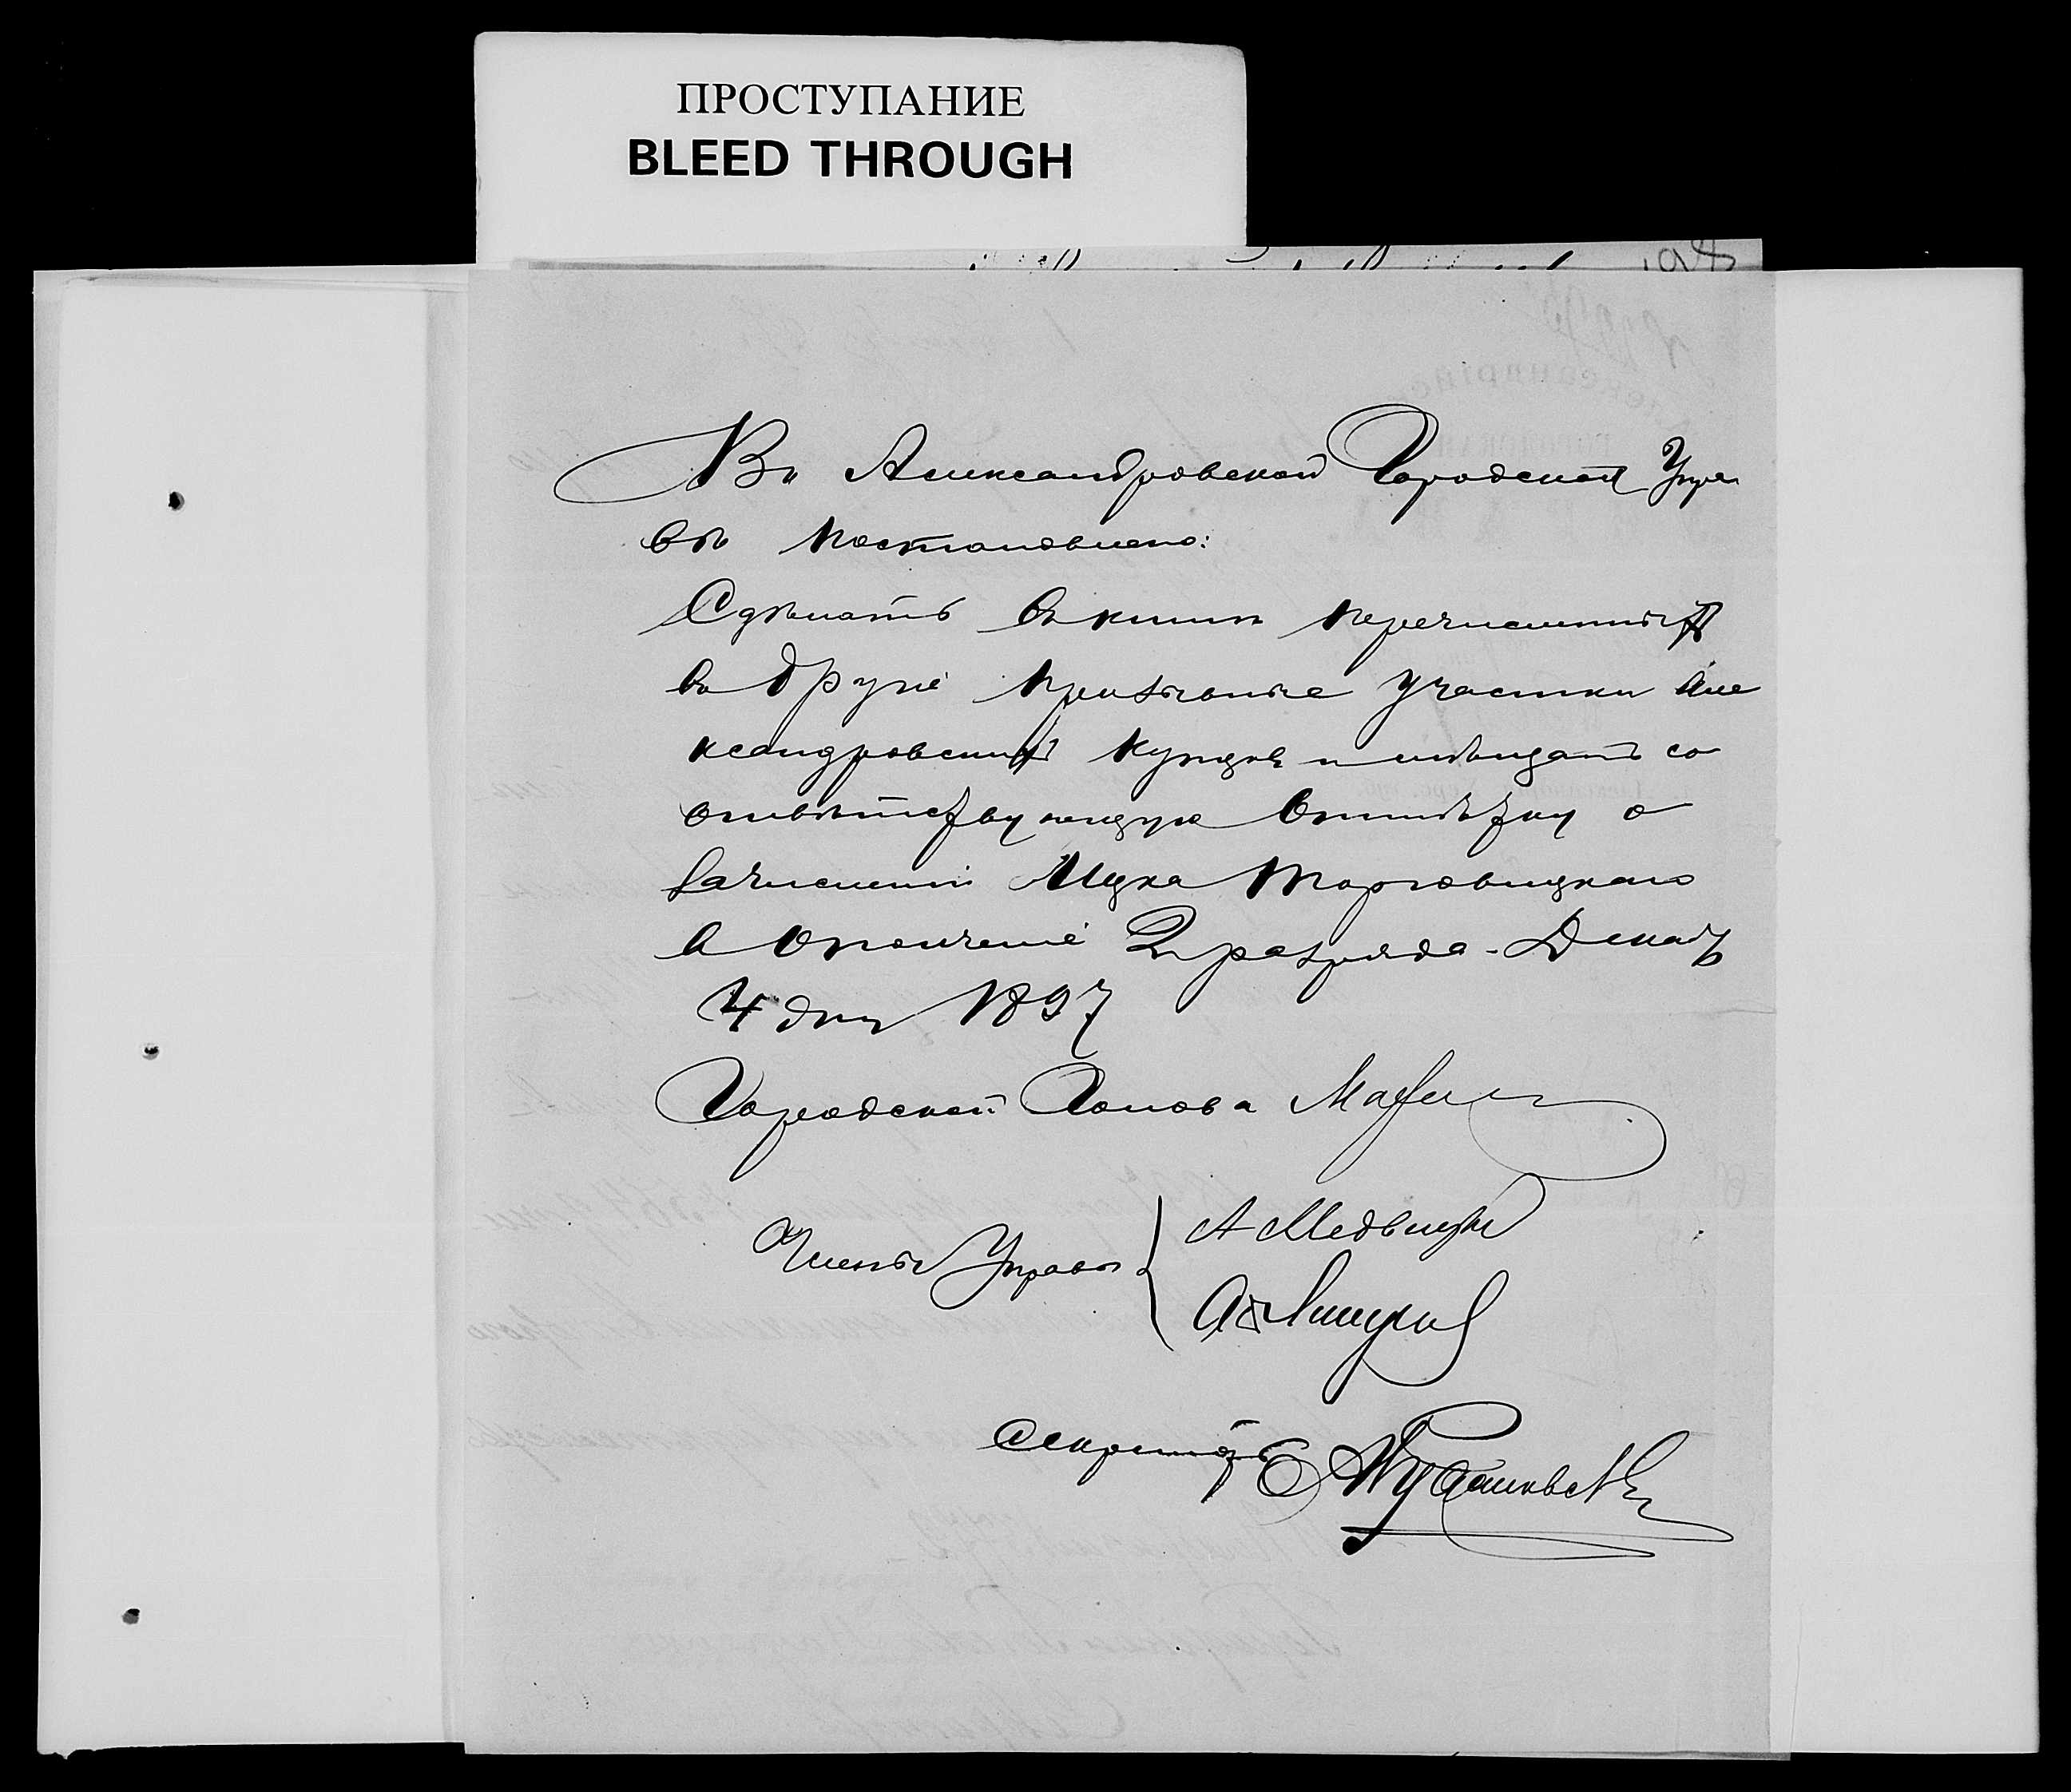 ПРОСТУПАНИЕ
BLEED THROUGH
Въ Александровской Городской Упра
вѣ постановлено:
Сдѣлать въ книгѣ перечисленныхъ
въ другіе призывные участки Але
ксандровскихъ купцовъ и мѣщанъ со
отвѣтствующую отмѣтку о
зачисленіи Ицка Торговицкаго
в ополченіе 2 разряда. Декабр
4 дня 1897
Городской Голова
Члены Управы
А Медвѣдев
Секретарь